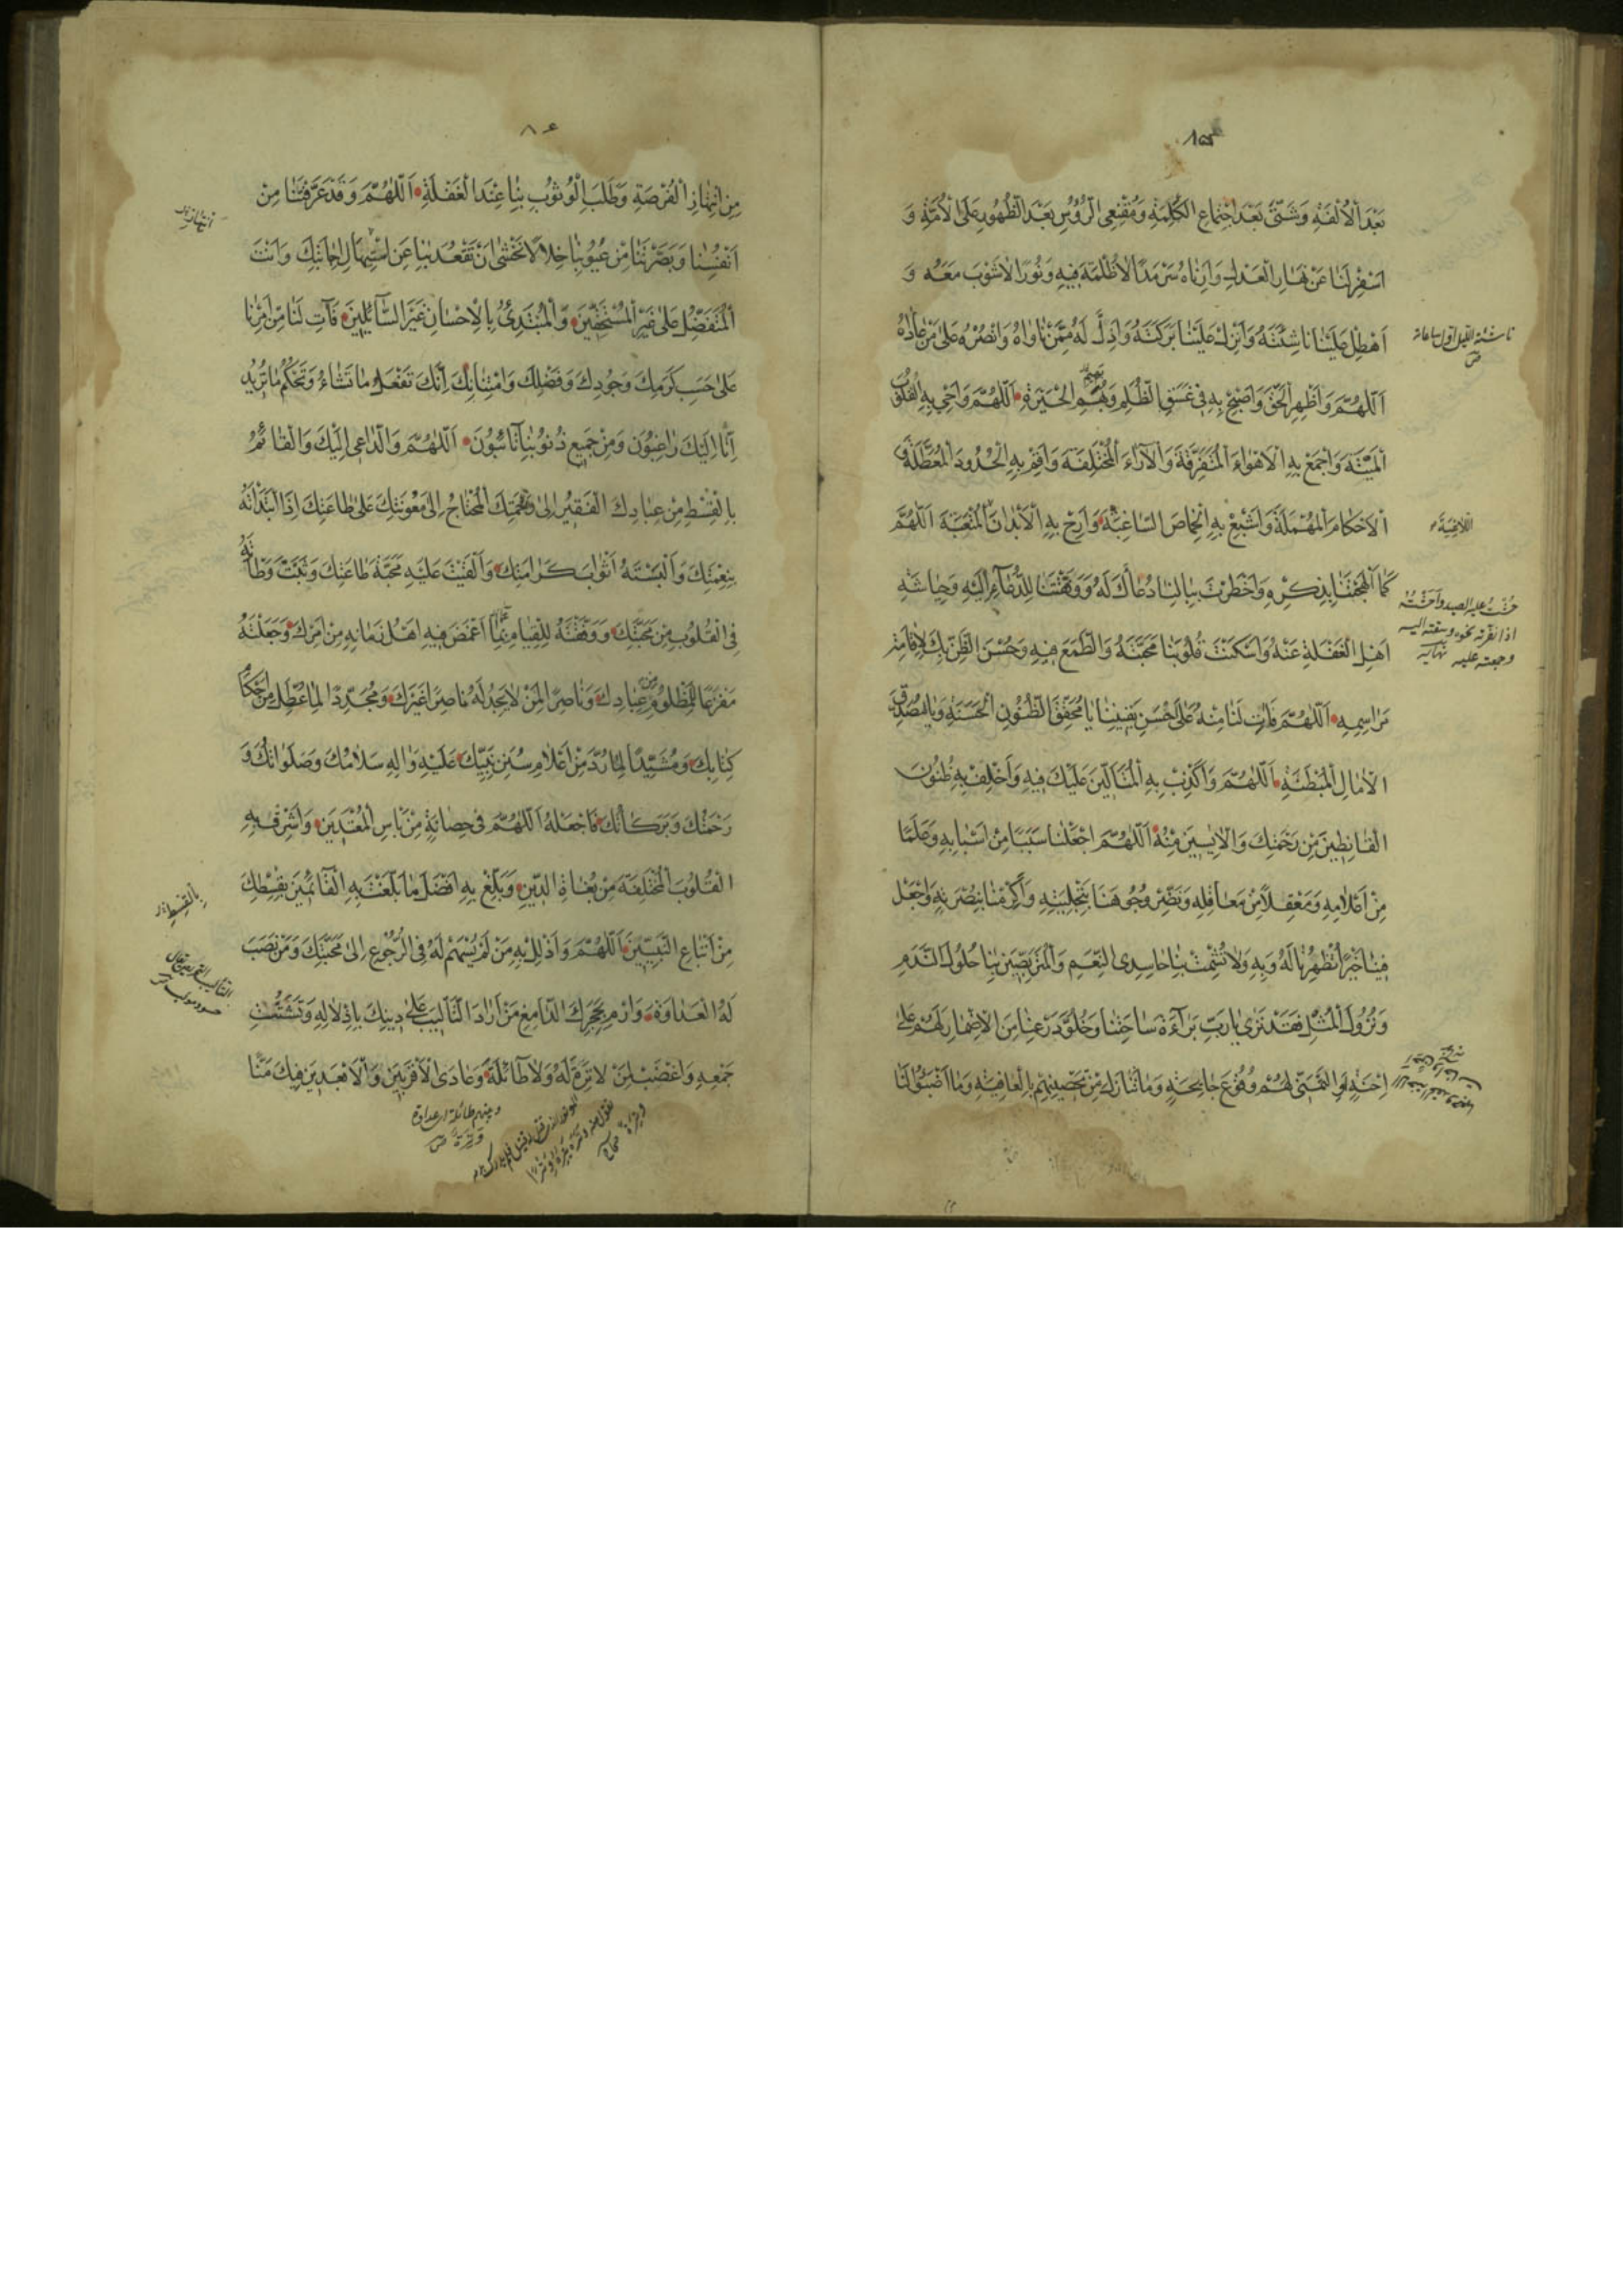 ١٨٥
بَعْدَ الْاُلْفَةِ وَشَتّٰى بَعْدَ اجْتِمَاعِ الْكَلِمَةِ وَمُقْنِعِى الرُّؤُسِ بَعْدَ الظُّهُورِ عَلَى الْاُمَّةِ وَ
اَسْفِرْ لَنَا عَنْ نَهَارِ الْعَدْلِ وَاَرِنَاهُ سَرْمَدًا لَاظُلْمَةَ فِيهِ وَنُورًا لَاشَوْبَ مَعَهُ وَ
اَهْطِلْ عَلَيْنَا نَاشِئَتَهُ وَاَنْزِلْ عَلَيْنَا بَرَكَتَهُ وَاَدِلْ لَهُ مِمَّنْ نَاوَاهُ وَانْصُرْهُ عَلٰى مَنْ عَادَاهُ
اَللّٰهُمَّ وَاَظْهِرِ الْحَقَّ وَاَصْبِحْ بِهِ فِى غَسَقِ الظُّلَمِ وَبُهَمِ الْحَيْرَةِ اَللّٰهُمَّ وَاَحْىِ بِهِ الْقُلُوبَ
الْمَيِّتَةَ وَاجْمَعْ بِهِ الْاَهْوَاءَ الْمُتَفَرِّقَةَ وَالْآرَاءَ الْمُخْتَلِفَةَ وَاَقِمْ بِهِ الْحُدُودَ الْمُعَطَّلَةَ وَ
الْاَحْكَامَ الْمُهْمَلَةَ وَاَشْبِعْ بِهِ الْخِمَاصَ السَّاغِبَةَ وَاَرِحْ بِهِ الْاَبْدَانَ الْمُتْعَبَةَ اَللّٰهُمَّ
كَمَا اَلْهَجْتَنَا بِذِكْرِهِ وَاَخْطَرْتَ بِبَالِنَا دُعَاءَكَ لَهُ وَوَفَّقْتَنَا لِلدُّعَآءِ اِلَيْهِ وَحِيَاشَةِ
اَهْلِ الْغَفْلَةِ عَنْهُ وَاَسْكَنْتَ قُلُوبَنَا مَحَبَّتَهُ وَالطَّمَعَ فِيهِ وَحُسْنَ الظَّنِّ بِكَ لِاِقَامَةِ
مَرَاسِمِهِ اَللّٰهُمَّ فَآتِ لَنَا مِنْهُ عَلٰى اَحْسَنِ يَقِينِنَا يَا مُحَقِّقَ الظُّنُونِ الْحَسَنَةِ وَيَا مُصَدِّقَ
الْآمَالِ الْمُبْطِئَةِ اَللّٰهُمَّ وَاَكْذِبْ بِهِ الْمُتَاَلِّينَ عَلَيْكَ فِيهِ وَاَخْلِفْ بِهِ ظُنُونَ
الْقَانِطِينَ مِنْ رَحْمَتِكَ وَالْآيِسِينَ مِنْهُ اَللّٰهُمَّ اجْعَلْنَا سَبَبًا مِنْ اَسْبَابِهِ وَعَلَمًا
مِنْ اَعْلَامِهِ وَمَعْقِلًا مِنْ مَعَاقِلِهِ وَنَضِّرْ وُجُوهَنَا بِتَحْلِيَتِهِ وَاَكْرِمْنَا بِنُصْرَتِهِ وَاجْعَلْ
فِينَا خَيْرًا تُظْهِرُنَا لَهُ وَبِهِ وَلَا تُشْمِتْ بِنَا حَاسِدِى النِّعَمِ وَالْمُتَرَبِّصِينَ بِنَا حُلُولَ النَّدَمِ
وَنُزُولَ الْمُثَلِ فَقَدْ تَرٰى يَا رَبِّ بَرَآءَةَ سَاحَتِنَا وَخُلُوَّ ذَرْعِنَا مِنَ الْاِضْمَارِ لَهُمْ عَلٰى
اِحْنَةٍ اَوِ التَّمَنِّى لَهُمْ وُقُوعَ جَائِحَةٍ وَمَا تَنَازَلَ مِنْ تَحْصِينِهِمْ بِالْعَافِيَةِ وَمَا اَضَبُّوا لَنَا
ناشئة الليل اول ساعاته
ص
اللاغبة
حُشت عليه الصيد وأحشته
اذا نفّرته نحوه وسقته اليه
وجمعته عليه نهايه
٨٦
مِنِ انْتِهَازِ الْفُرْصَةِ وَطَلَبِ الْوُثُوبِ بِنَا عِنْدَ الْغَفْلَةِ اَللّٰهُمَّ وَقَدْ عَرَّفْتَنَا مِنْ
اَنْفُسِنَا وَبَصَّرْتَنَا مِنْ عُيُوبِنَا خِلَالًا نَخْشٰى اَنْ تَقْعُدَ بِنَا عَنِ اسْتِيهَالِ اِجَابَتِكَ وَاَنْتَ
الْمُتَفَضِّلُ عَلٰى غَيْرِ الْمُسْتَحِقِّينَ وَالْمُبْتَدِئُ بِالْاِحْسَانِ غَيْرَ السَّآئِلِينَ فَآتِ لَنَا مِنْ اَمْرِنَا
عَلٰى حَسَبِ كَرَمِكَ وَجُودِكَ وَفَضْلِكَ وَامْتِنَانِكَ اِنَّكَ تَفْعَلُ مَا تَشَاءُ وَتَحْكُمُ مَا تُرِيدُ
اِنَّا اِلَيْكَ رَاغِبُونَ وَمِنْ جَمِيعِ ذُنُوبِنَا تَائِبُونَ اَللّٰهُمَّ وَالدَّاعِى اِلَيْكَ وَالْقَائِمُ
بِالْقِسْطِ مِنْ عِبَادِكَ الْفَقِيرُ اِلٰى رَحْمَتِكَ الْمُحْتَاجُ اِلٰى مَعُونَتِكَ عَلٰى طَاعَتِكَ اِذَا ابْتَدَاْتَهُ
بِنِعْمَتِكَ وَاَلْبَسْتَهُ اَثْوَابَ كَرَامَتِكَ وَاَلْقَيْتَ عَلَيْهِ مَحَبَّةَ طَاعَتِكَ وَثَبَّتَّ وَطْاَتَهُ
فِى الْقُلُوبِ مِنْ مَحَبَّتِكَ وَوَفَّقْتَهُ لِلْقِيَامِ بِمَا اَغْمَضَ فِيهِ اَهْلُ زَمَانِهِ مِنْ اَمْرِكَ وَجَعَلْتَهُ
مَفْزَعًا لِمَظْلُومِ عِبَادِكَ وَنَاصِرًا لِمَنْ لَا يَجِدُ لَهُ نَاصِرًا غَيْرَكَ وَمُجَدِّدًا لِمَا عُطِّلَ مِنْ اَحْكَامِ
كِتَابِكَ وَمُشَيِّدًا لِمَا رُدَّ مِنْ اَعْلَامِ سُنَنِ نَبِيِّكَ عَلَيْهِ وَاٰلِهِ سَلَامُكَ وَصَلَوَاتُكَ وَ
رَحْمَتُكَ وَبَرَكَاتُكَ فَاجْعَلْهُ اَللّٰهُمَّ فِى حَصَانَةٍ مِنْ بَاْسِ الْمُعْتَدِينَ وَاَشْرِقْ بِهِ
الْقُلُوبَ الْمُخْتَلِفَةَ مِنْ بُغَاةِ الدِّينِ وَبَلِّغْ بِهِ اَفْضَلَ مَا بَلَّغْتَ بِهِ الْقَآئِمِينَ بِقِسْطِكَ
مِنْ اَتْبَاعِ النَّبِيِّينَ اَللّٰهُمَّ وَاَذْلِلْ بِهِ مَنْ لَمْ يُسْهِمْ لَهُ فِى الرُّجُوعِ اِلٰى مَحَبَّتِكَ وَمَنْ نَصَبَ
لَهُ الْعَدَاوَةَ وَارْمِ بِحَجَرِكَ الدَّامِغِ مَنْ اَرَادَ التَّاْلِيبَ عَلٰى دِينِكَ بِاِذْلَالِهِ وَتَشْتِيتِ
جَمْعِهِ وَاغْضَبْ لِمَنْ لَا تِرَةَ لَهُ وَلَا طَآئِلَةَ وَعَادَى الْاَقْرَبِينَ وَالْاَبْعَدِينَ فِيكَ مَنًّا
بِالقِسطِ
وبينهم طائلة اى عداوة
وتِرَة ص